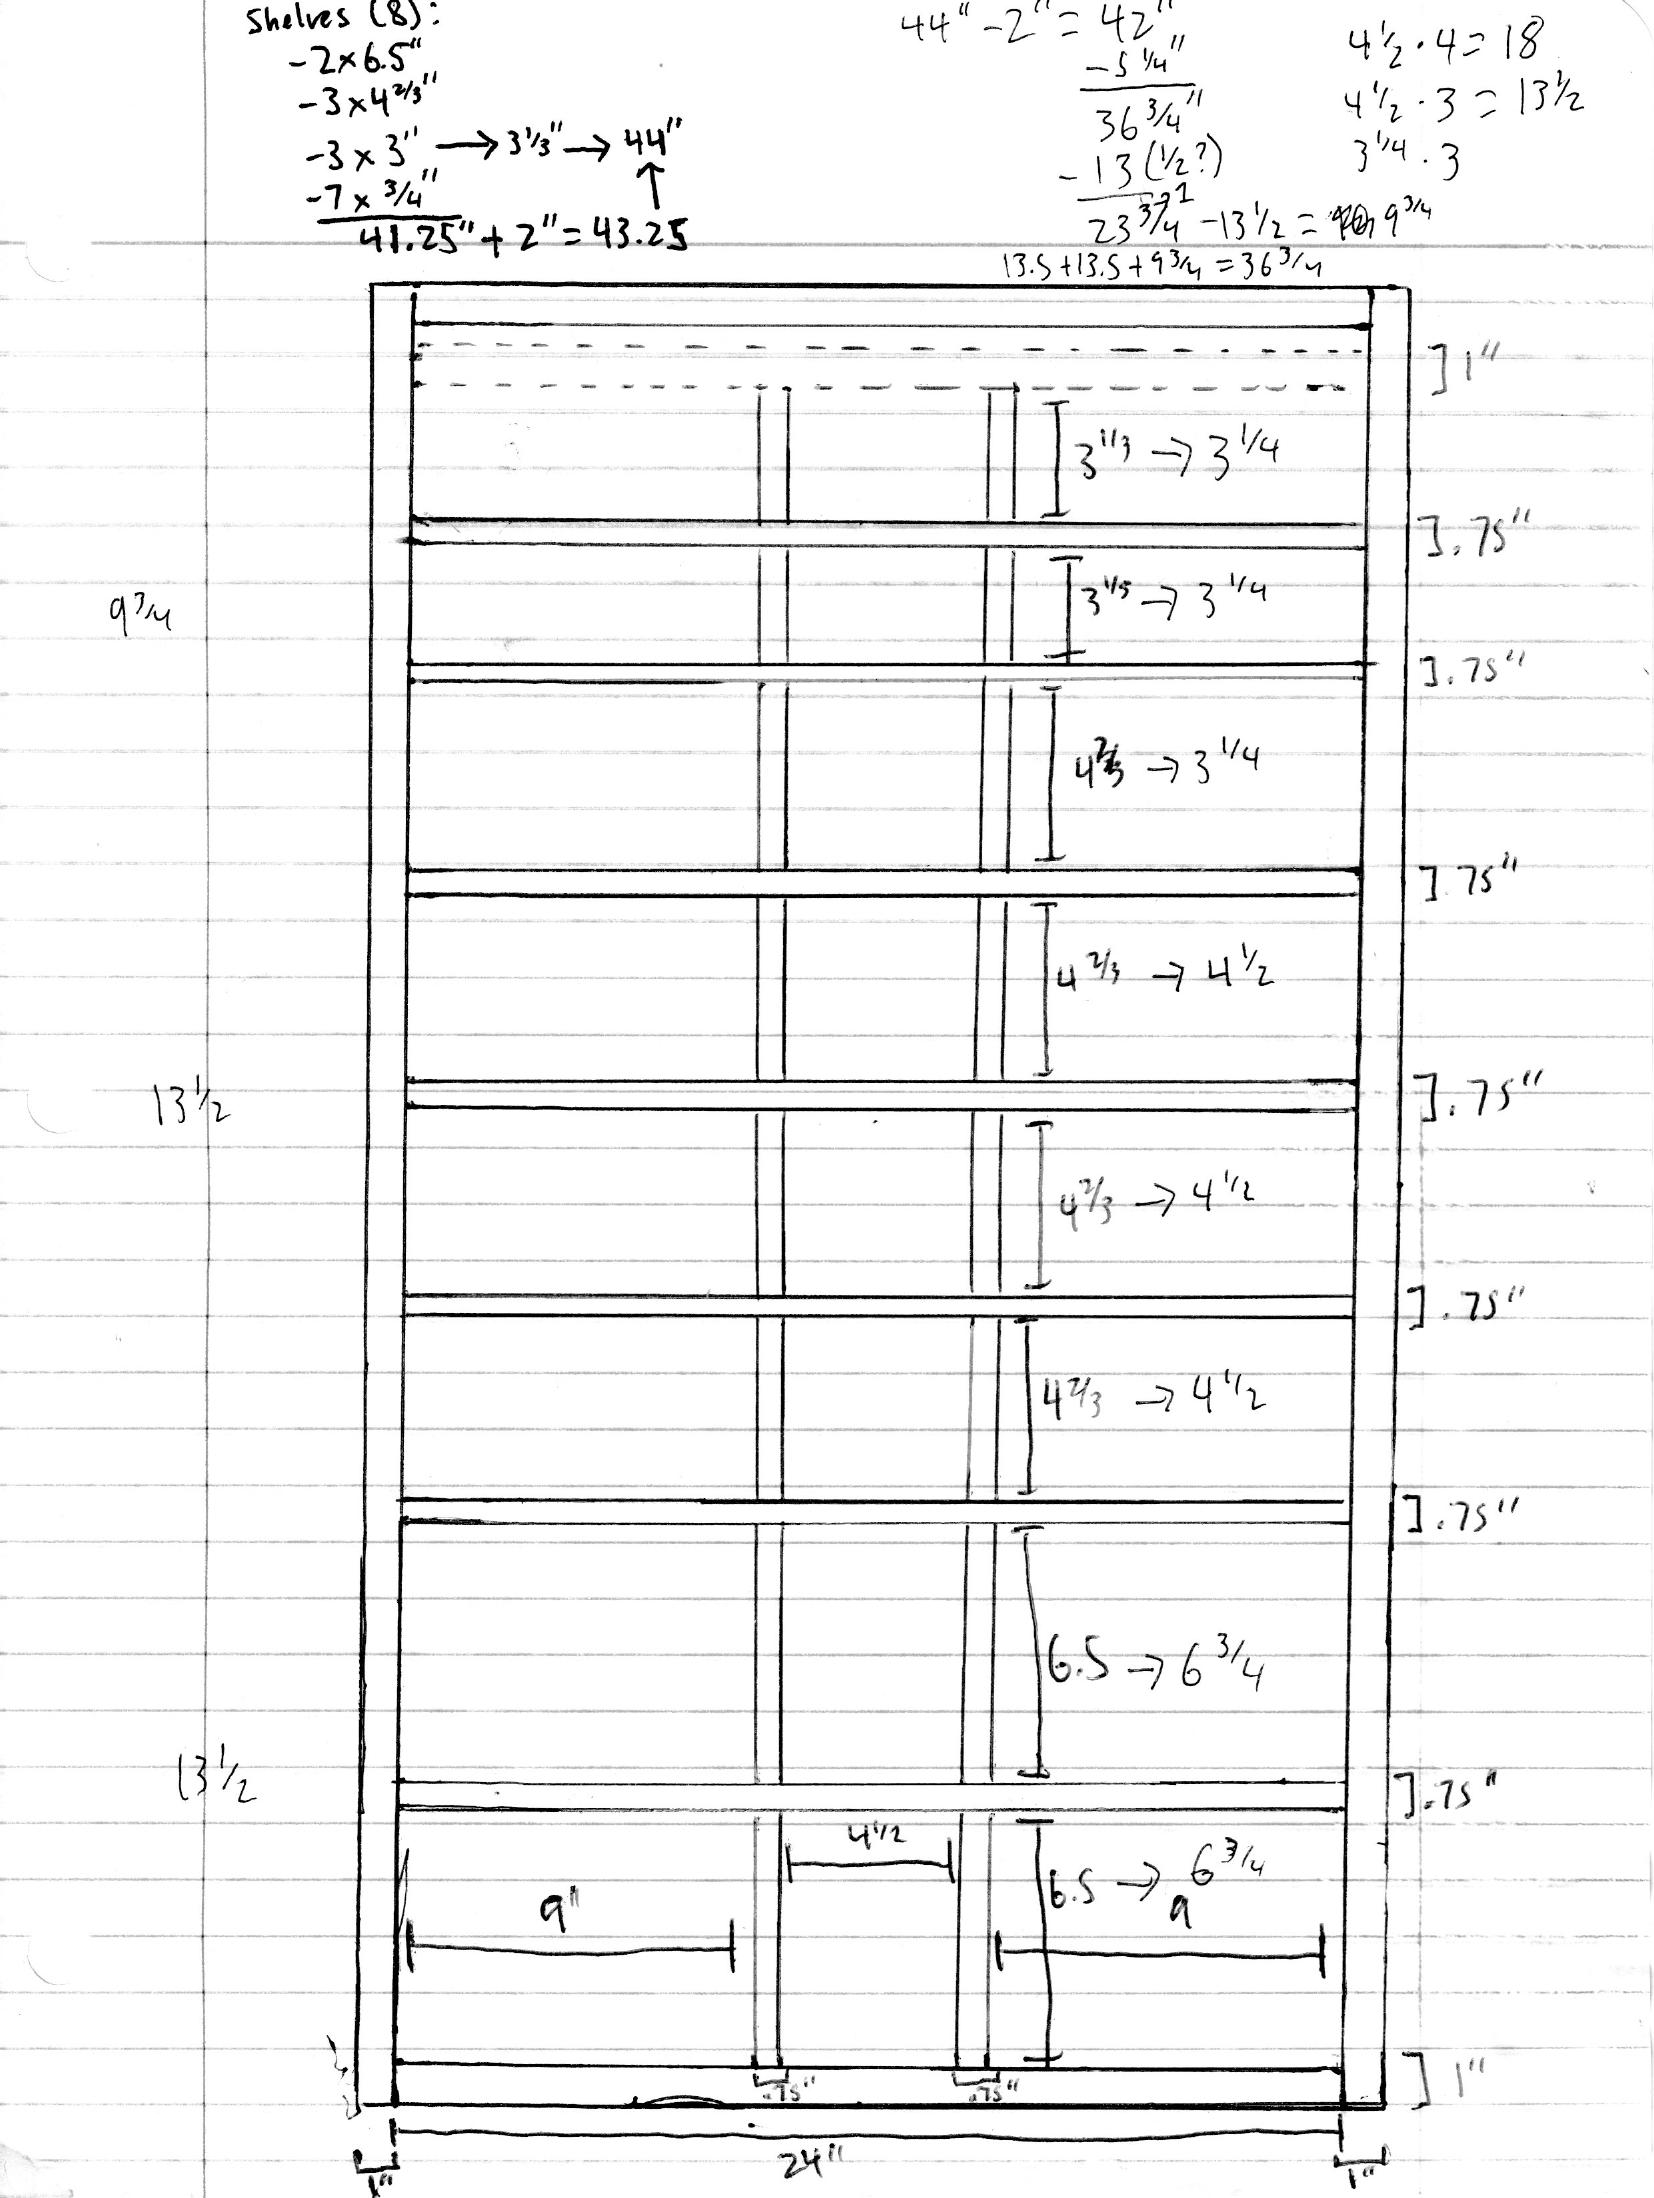 Shelves (8):
-2x6.5"
-3x4 2/3"
-3x3" → 3 1/3" → 44"
-7x 3/4" ↑
41.25" + 2" = 43.25
44" - 2" = 42"
-5 1/4"
36 3/4"
-13 (1/2?)
23 3/4 - 13 1/2 = 9 3/4
13.5+13.5+9 3/4 = 36 3/4
4 1/2 · 4 = 18
4 1/2 · 3 = 13 1/2
3 1/4 · 3
] 1"
3 1/3 → 3 1/4
] .75"
9 3/4
3 1/3 → 3 1/4
] .75"
4 2/3 → 3 1/4
] .75"
4 2/3 → 4 1/2
13 1/2
] .75"
4 2/3 → 4 1/2
] .75"
4 2/3 → 4 1/2
] .75"
6.5 → 6 3/4
13 1/2
] .75"
4 1/2
6.5 → 6 3/4
9"
9
.75"
.75"
] 1"
1"
24"
1"